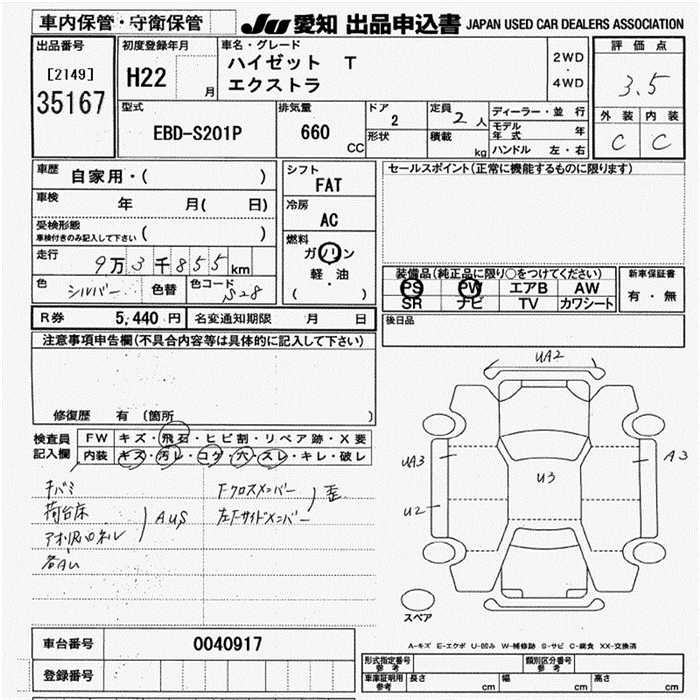 車内保管・守衛保管
JU 愛知 出品申込書 JAPAN USED CAR DEALERS ASSOCIATION
出品番号
[2149]
35167
初度登録年月
H22 月
車名・グレード
ハイゼット T
エクストラ
2WD
・
4WD
評価点
3.5
外装 内装
C C
型式
EBD-S201P
排気量
660 CC
ドア
2
形状
定員
2 人
積載
kg
ディーラー・並行
モデル年式 年
ハンドル 左・右
車歴
自家用・( )
車検
年 月( 日)
受検形態
車検付きのみ記入して下さい ( )
走行
9万3千855km
色 シルバー 色替 色コード S28
シフト
FAT
冷房
AC
燃料
ガソリン
軽・油
( )
セールスポイント(正常に機能するものに限ります)
装備品(純正品に限り○をつけてください)
PS PW エアB AW
SR ナビ TV カワシート
新車保証書
有・無
R券 5,440 円 名変通知期限 月 日
後日品
注意事項申告欄(不具合内容等は具体的に記入して下さい)
修復歴 有 (箇所 )
検査員
記入欄
FW キズ・飛石・ヒビ割・リペア跡・X要
内装 キズ・汚レ・コゲ・穴・スレ・キレ・破レ
キバミ
荷台床
アオリ,Rパネル
AUS
各AU
Fクロスメンバー
左Fサイドメンバー
歪
UA2
UA3
U2
U3
A3
スペア
A-キズ E-エクボ U-凹み W-補修跡 S-サビ C-腐食 XX-交換済
車台番号 0040917
登録番号
形式指定番号
参考
類別区分番号
参考
車庫証明用
参考
長さ cm 幅 cm 高さ cm